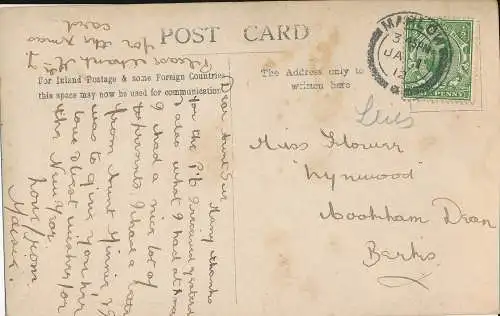 POST CARD
For Inland Postage & some Foreign Countries
this space may now be used for communication.
The Address only to
written here
MARLOW
JA
12
PENNY
Miss Flower
Wynwood
Cookham Dean
Berks
Dear Aunt Sue
Many thanks
for the P/c I received yesterd
I also what I had at Xmas
I had a nice lot of
presents I had a
from Aunt Ginnie &
was to give you her
love & best wishes for
the New Year
Love from
Please thank
for the Xmas
card